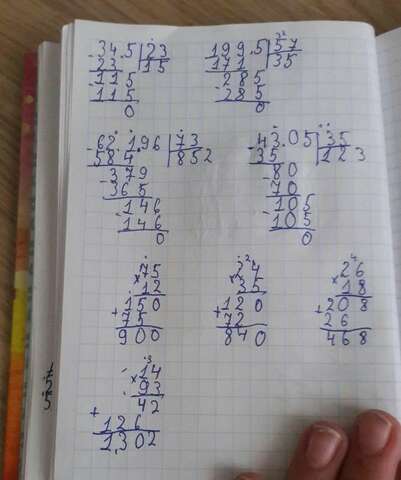 -34.5 | 23
23 | 15
-115
115
0
199.5 | 57
171 | 35
285
-285
0
-62.196 | 73
584 | 852
-379
365
-146
146
0
-43.05 | 35
35 | 123
-80
70
-105
105
0
×75
12
+150
75
900
2
×24
35
+120
72
840
4
×26
18
+208
26
468
3
×14
93
42
+126
1302